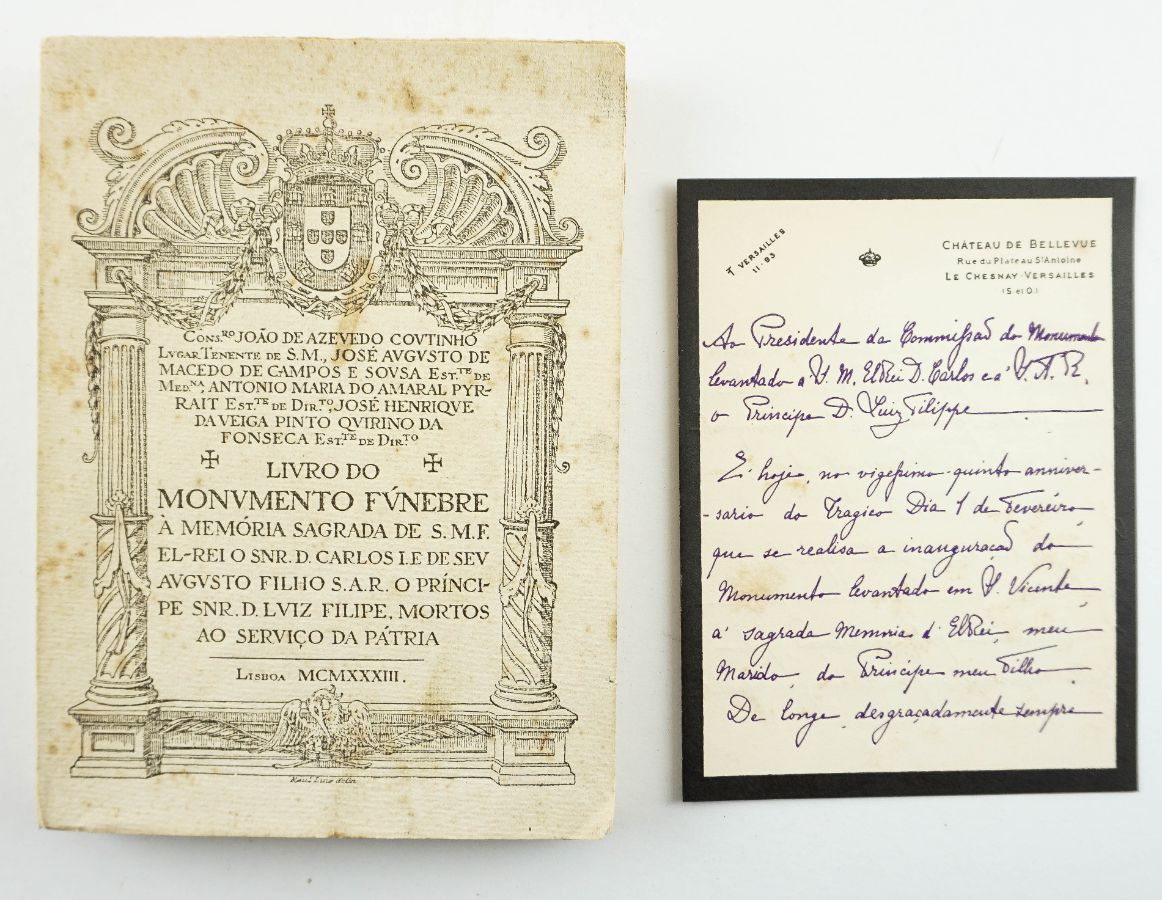 CONS.RO JOÃO DE AZEVEDO COVTINHO
LVGAR TENENTE DE S.M., JOSÉ AVGVSTO DE
MACEDO DE CAMPOS E SOVSA EST.TE DE
MED.NA, ANTONIO MARIA DO AMARAL PYR-
RAIT EST.TE DE DIR.TO, JOSÉ HENRIQVE
DA VEIGA PINTO QVIRINO DA
FONSECA EST.TE DE DIR.TO
LIVRO DO
MONVMENTO FÚNEBRE
À MEMÓRIA SAGRADA DE S.M.F.
EL-REI O SNR. D. CARLOS I. E DE SEV
AVGVSTO FILHO S.A.R. O PRÍNCI-
PE SNR. D. LVIZ FILIPE, MORTOS
AO SERVIÇO DA PÁTRIA
LISBOA MCMXXXIII.
Raul Lino
VERSAILLES
11-93
CHÂTEAU DE BELLEVUE
Rue du Plateau St Antoine
LE CHESNAY-VERSAILLES
(S et O.)
Ao Presidente da Commissaõ do Monumento
levantado a S. M. ElRei D. Carlos e a S. A. R.
o Principe D. Luiz Filippe
E' hoje, no vigessimo-quinto anniver-
-sario do Tragico Dia 1 de Fevereiro
que se realisa a inauguraçaõ do
Monumento levantado em S. Vicente
á sagrada Memoria d'ElRei, meu
Marido, do Principe meu Filho.
De longe, desgraçadamente sempre